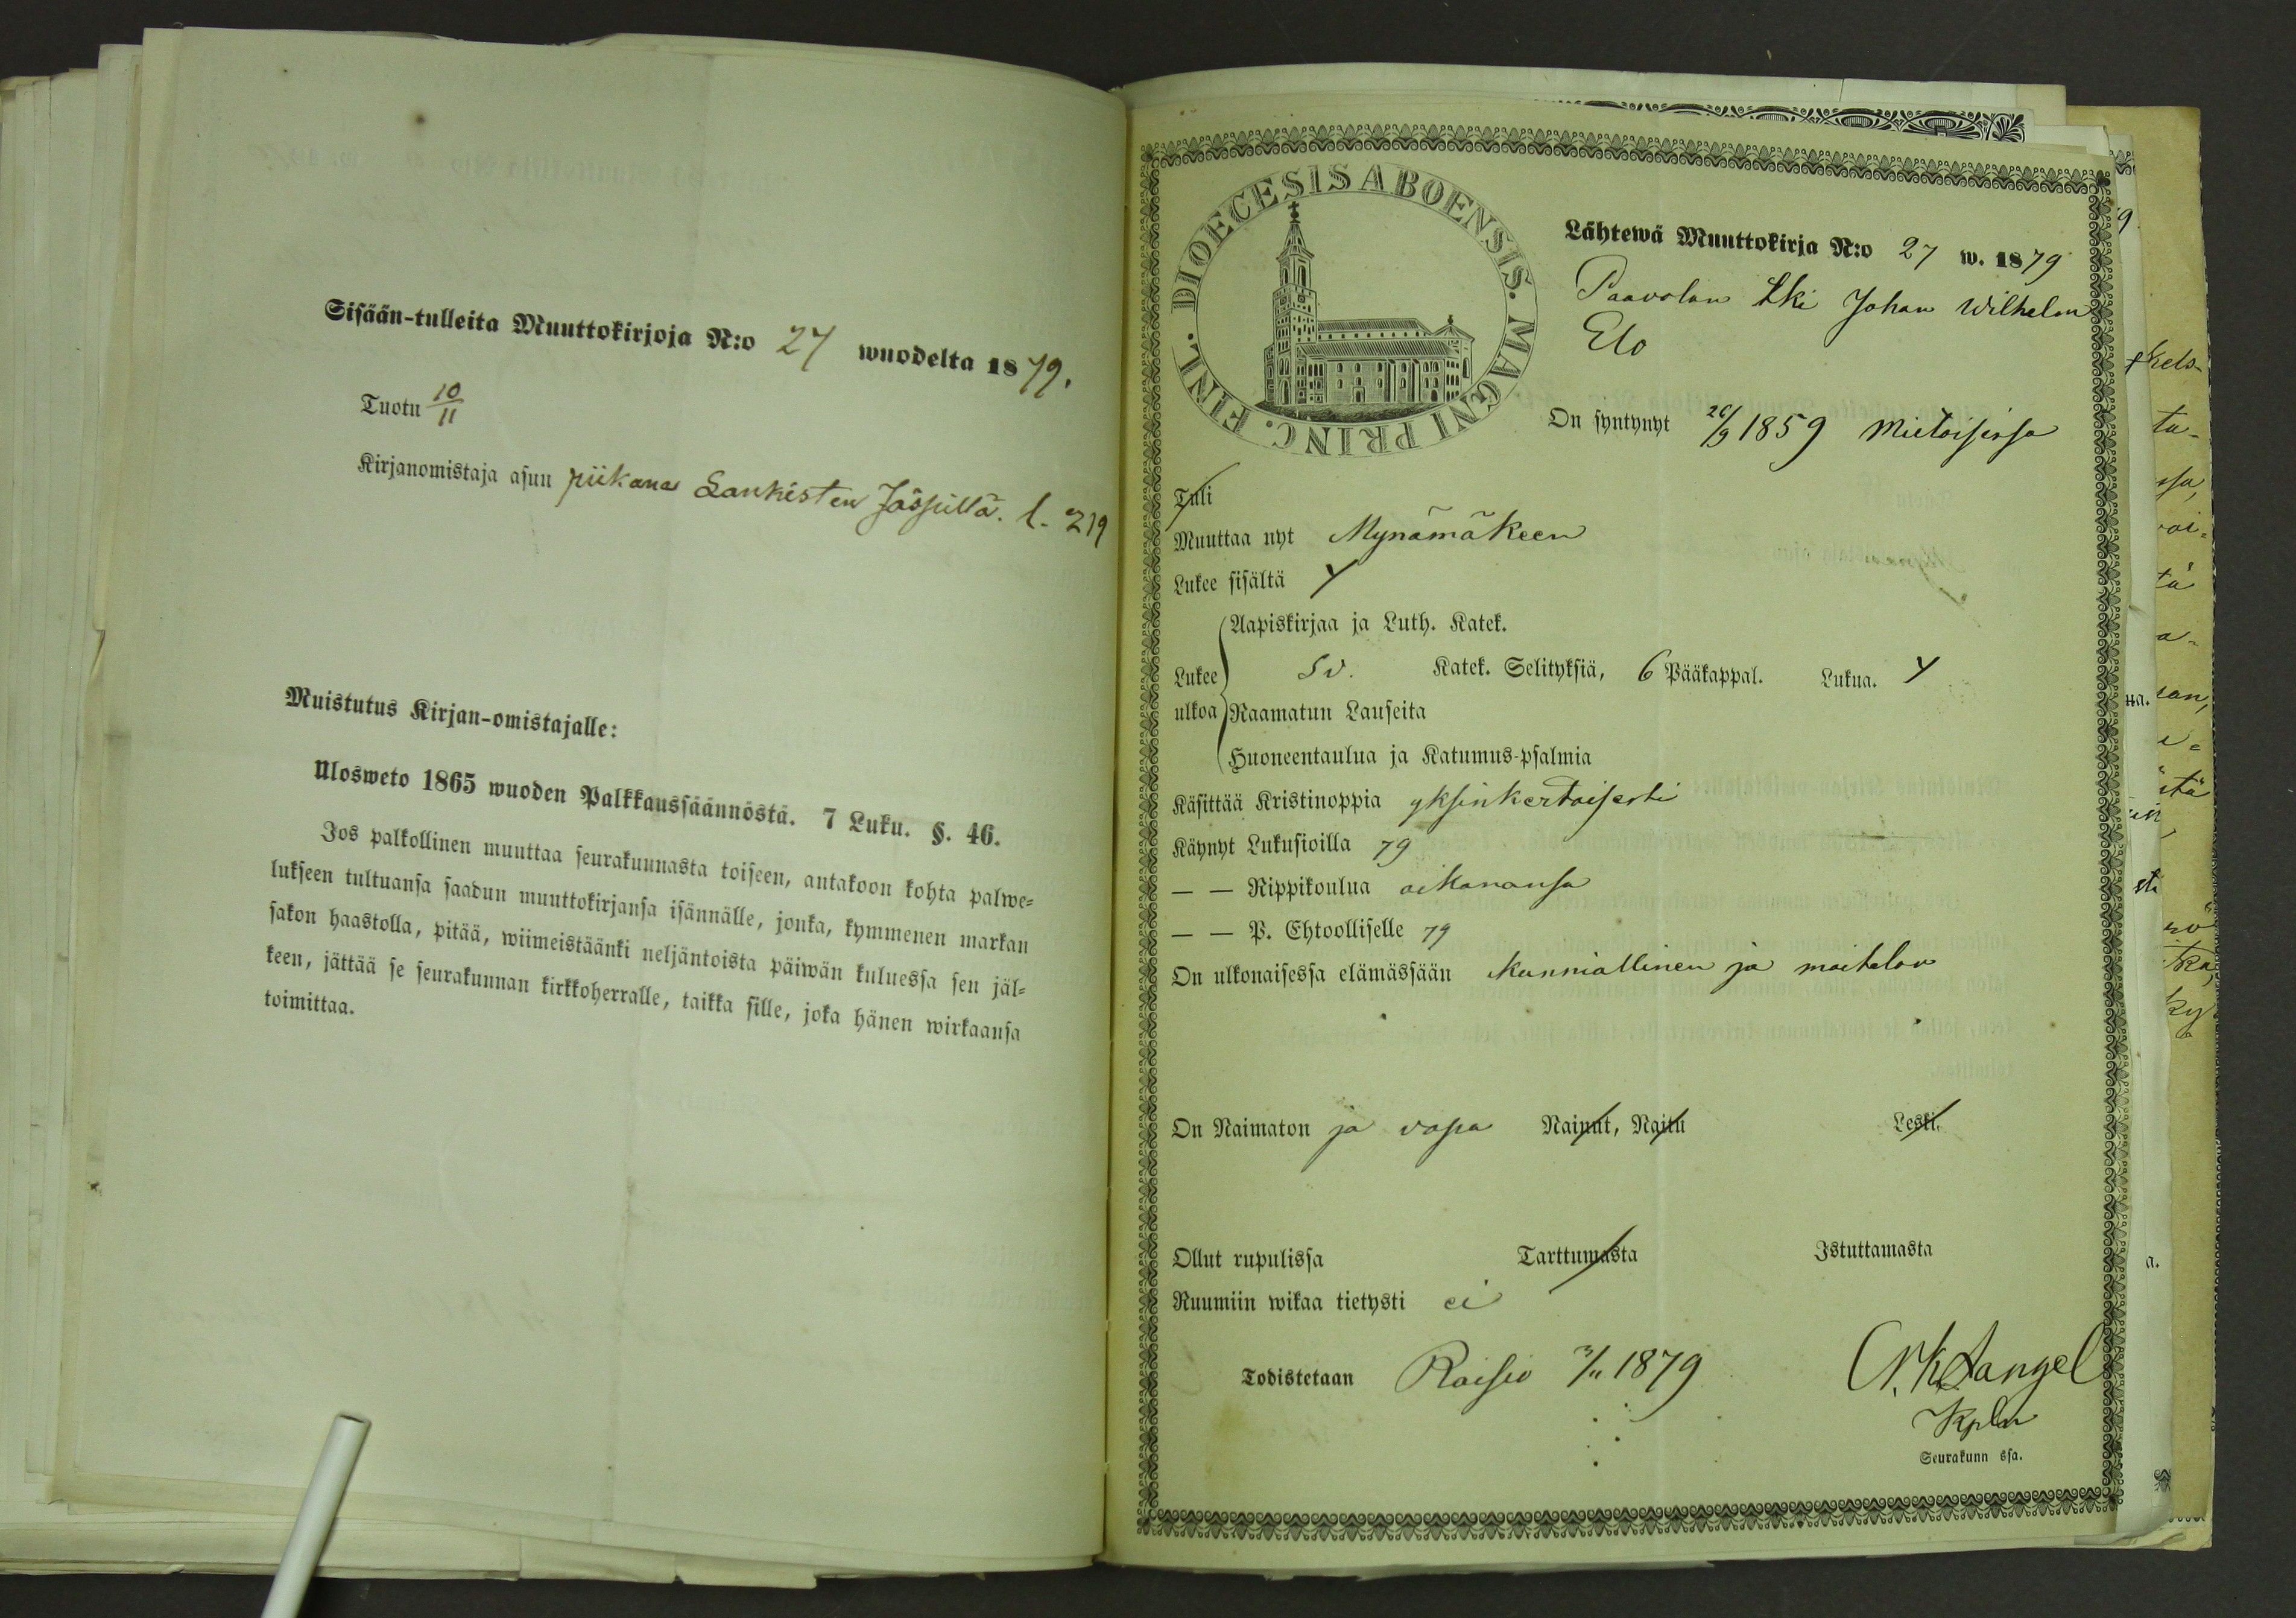 Sisään-tulleita Muuttokirjoja N:o 27 wuodelta 1879.
Tuotu 10/11
Kirjanomistaja asuu piikana Lankisten Jäspillä. l. 219
Muistutus Kirjan-omistajalle:
Ulosweto 1865 wuoden Palkkaussäännöstä. 7 Luku. §. 46.
Jos palkollinen muuttaa seurakunnasta toiseen, antakoon kohta palwe-
lukseen tultuansa saadun muuttokirjansa isännälle, jonka, kymmenen markan
sakon haastolla, pitää, wiimeistäänki neljäntoista päiwän kuluessa sen jäl-
keen, jättää se seurakunnan kirkkoherralle, taikka sille, joka hänen wirkaansa
toimittaa.
DIOECESIS ABOENSIS. MAGNI PRINC. FINL.
Lähtewä Muuttokirja N:o 27 w. 1879
Paavolan Lki Johan Wilhelm
Elo
On syntynyt 26/9 1859 Mietoisissa
Tuli
Muuttaa nyt Mynämäkeen
Lukee sisältä y
Aapiskirjaa ja Luth. Katek.
Lukee ulkoa
Sv. Katek. Selityksiä, 6 Pääkappal. Lukua. y
Raamatun Lauseita
Huoneentaulua ja Katumus-psalmia
Käsittää Kristinoppia yksinkertaisesti
Käynyt Lukusioilla 79
— — Rippikoulua aikanansa
— — P. Ehtoolliselle 79
On ulkonaisessa elämässään kunniallinen ja
On Naimaton ja vapa Nainut, Naitu Leski.
Ollut rupulissa Tarttumasta Istuttamasta
Ruumiin wikaa tietysti ei
Todistetaan Raisio 3/11 1879
Kpln
Seurakunn ssa.